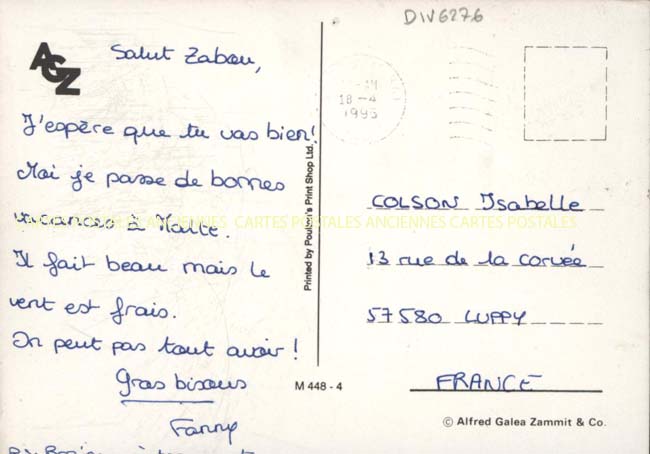 DIV6276
AGZ
Salut Zabou,
J'espère que tu vas bien!
Moi je passe de bonnes
vacances à Malte.
Il fait beau mais le
vent est frais.
On peut pas tout avoir!
Gros bisous
Fanny
CARTES POSTALES ANCIENNES CARTES POSTALES ANCIENNES CARTES POSTALES
Printed by Poulton's Print Shop Ltd.
M 448 - 4
18-4
1995
COLSON Isabelle
13 rue de la corvée
57580 LUPPY
FRANCE
© Alfred Galea Zammit & Co.